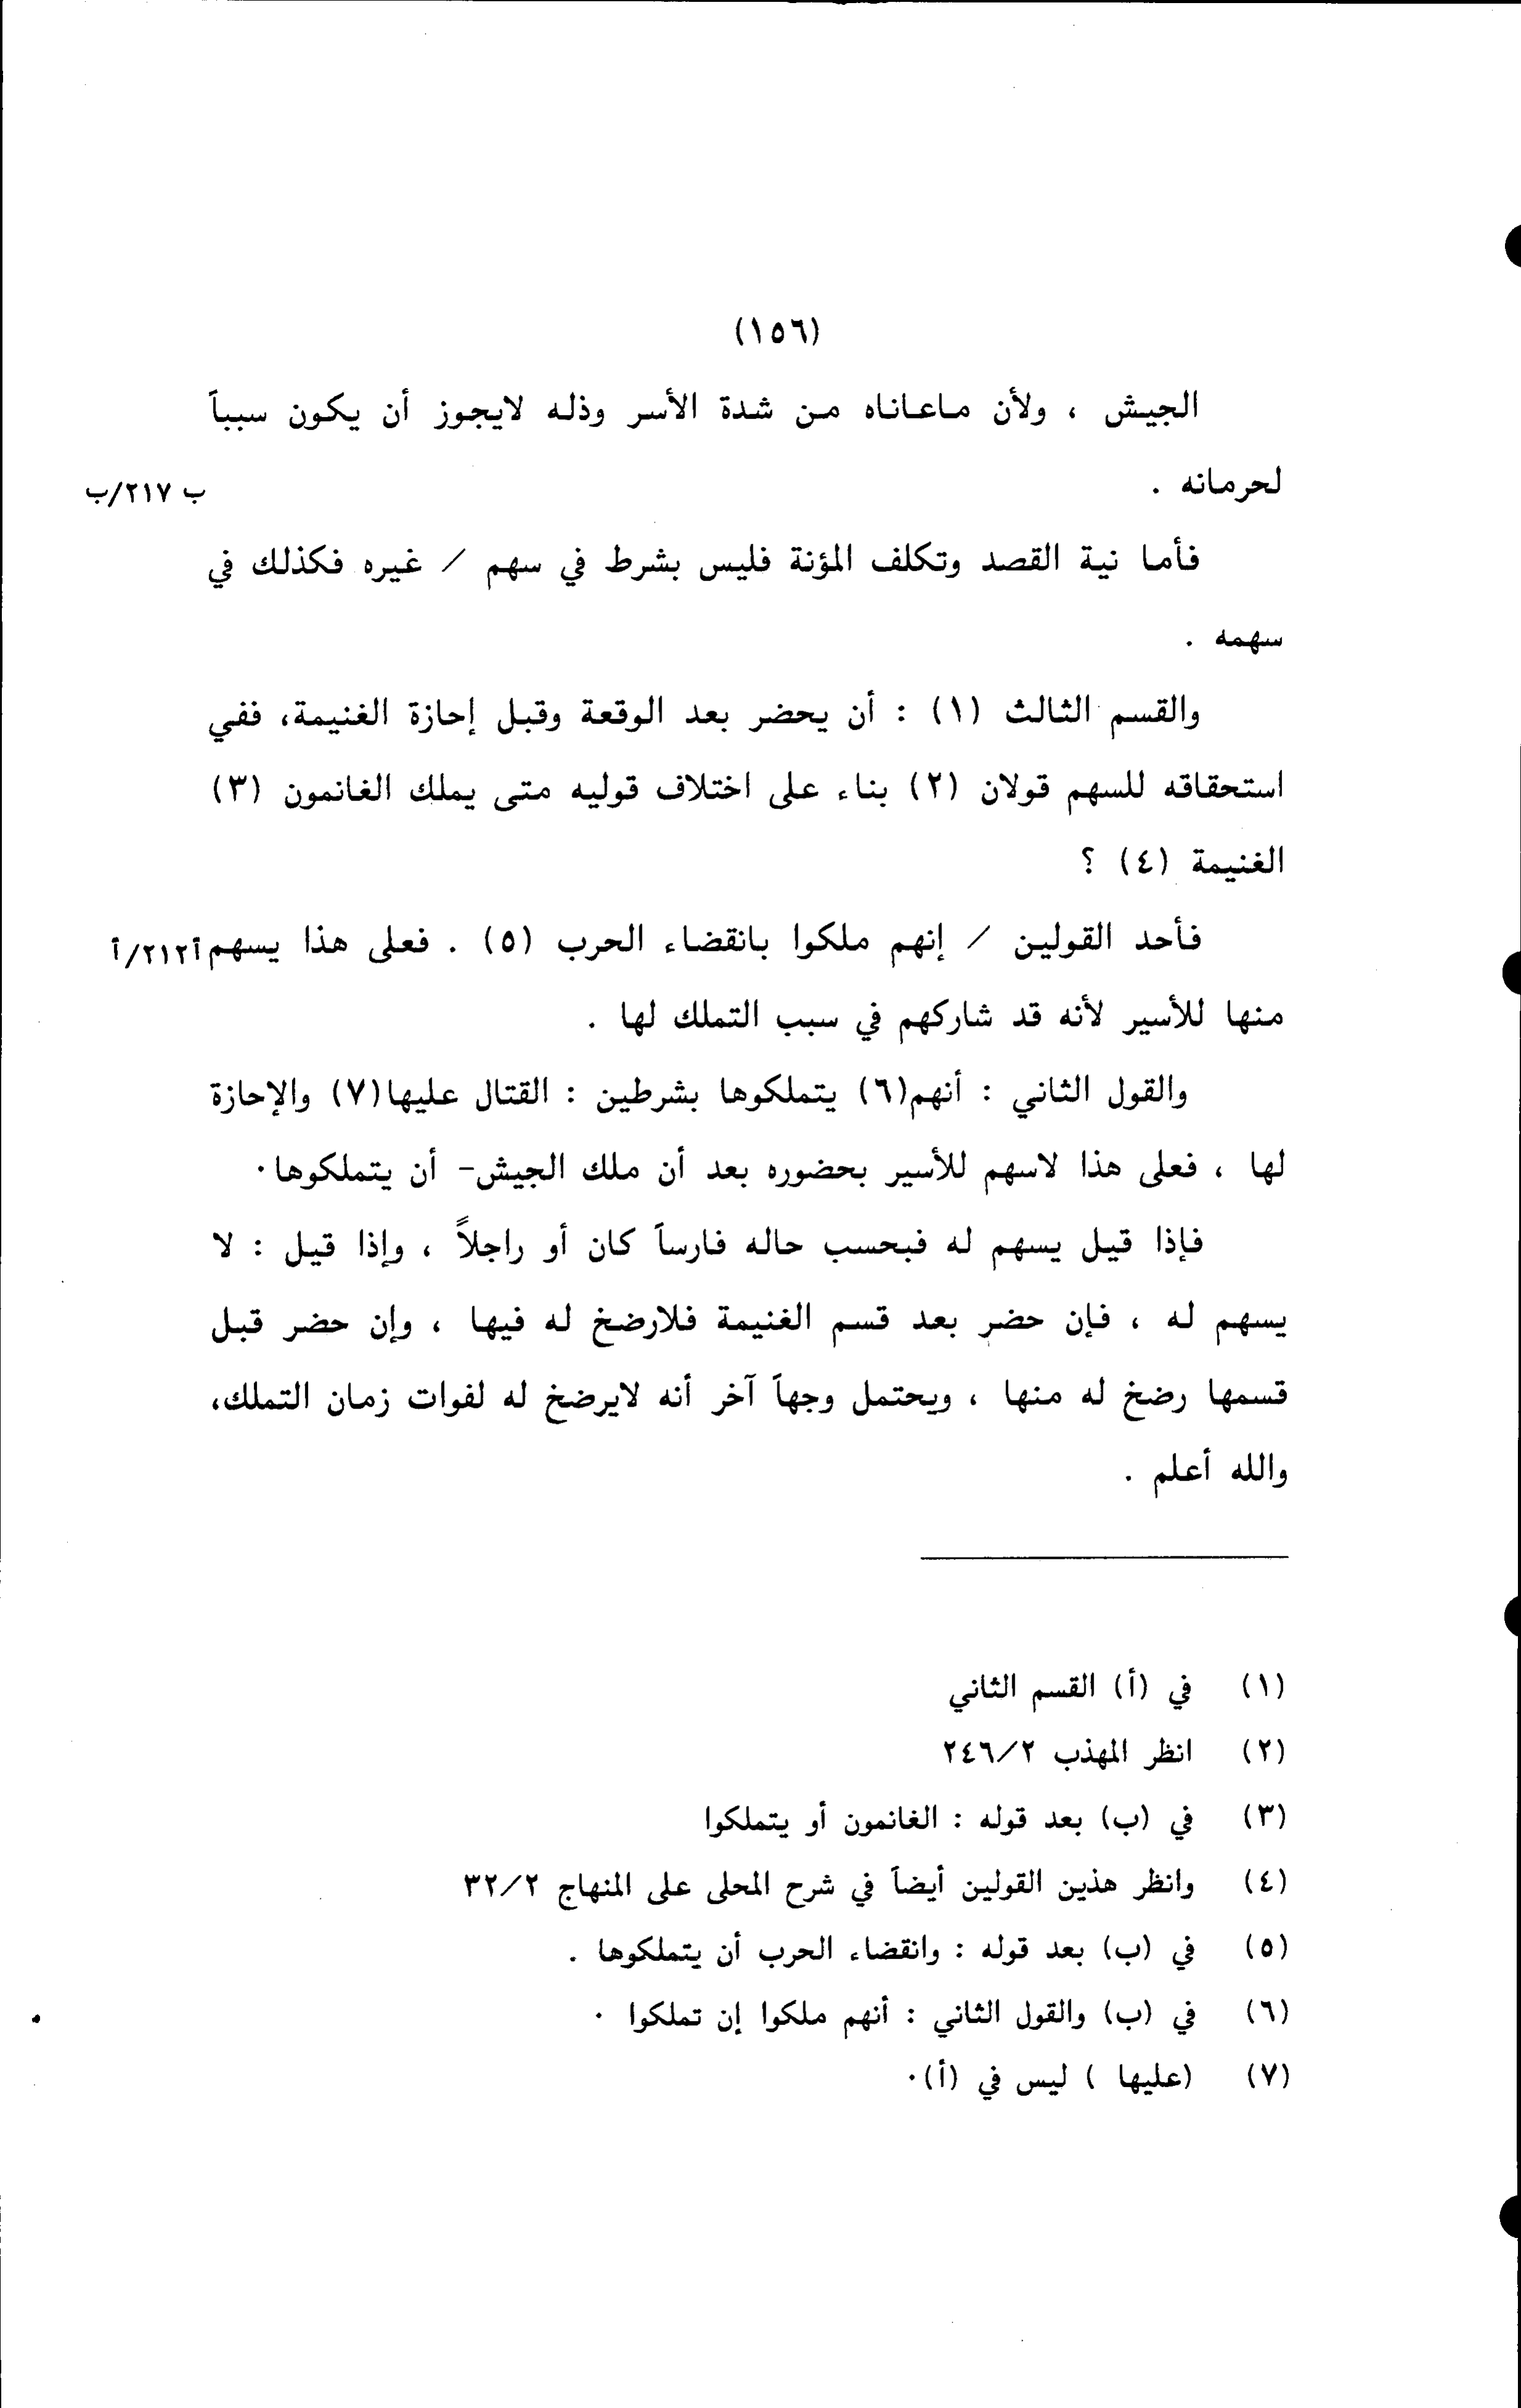 (١٥٦)
الجيش ، ولأن ماعاناه من شدة الأسر وذله لايجوز أن يكون سبباً
لحرمانه .
ب ٢١٧/ب
فأما نية القصد وتكلف المؤنة فليس بشرط في سهم / غيره فكذلك في
سهمه .
والقسم الثالث (١) : أن يحضر بعد الوقعة وقبل إحازة الغنيمة، ففي
استحقاقه للسهم قولان (٢) بناء على اختلاف قوليه متى يملك الغانمون (٣)
الغنيمة (٤) ؟
فأحد القولين / إنهم ملكوا بانقضاء الحرب (٥) . فعلى هذا يسهم أ٢١٢/أ
منها للأسير لأنه قد شاركهم في سبب التملك لها .
والقول الثاني : أنهم(٦) يتملكوها بشرطين : القتال عليها(٧) والإحازة
لها ، فعلى هذا لاسهم للأسير بحضوره بعد أن ملك الجيش- أن يتملكوها.
فإذا قيل يسهم له فبحسب حاله فارساً كان أو راجلاً ، وإذا قيل : لا
يسهم له ، فإن حضر بعد قسم الغنيمة فلارضخ له فيها ، وإن حضر قبل
قسمها رضخ له منها ، ويحتمل وجهاً آخر أنه لايرضخ له لفوات زمان التملك،
والله أعلم .
(١) في (أ) القسم الثاني
(٢) انظر المهذب ٢٤٦/٢
(٣) في (ب) بعد قوله : الغانمون أو يتملكوا
(٤) وانظر هذين القولين أيضاً في شرح المحلى على المنهاج ٣٢/٢
(٥) في (ب) بعد قوله : وانقضاء الحرب أن يتملكوها .
(٦) في (ب) والقول الثاني : أنهم ملكوا إن تملكوا .
(٧) (عليها ) ليس في (أ).